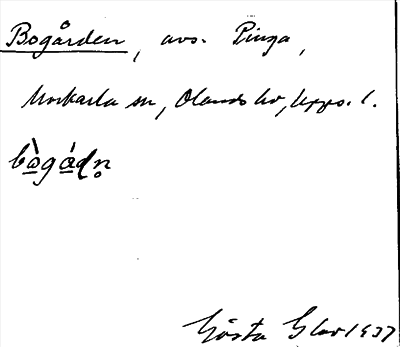 Bogården, avs. Pinga,
Morkarla sn, Olands hd, Upps. l.
bògádn̥
Gösta Glav 1937